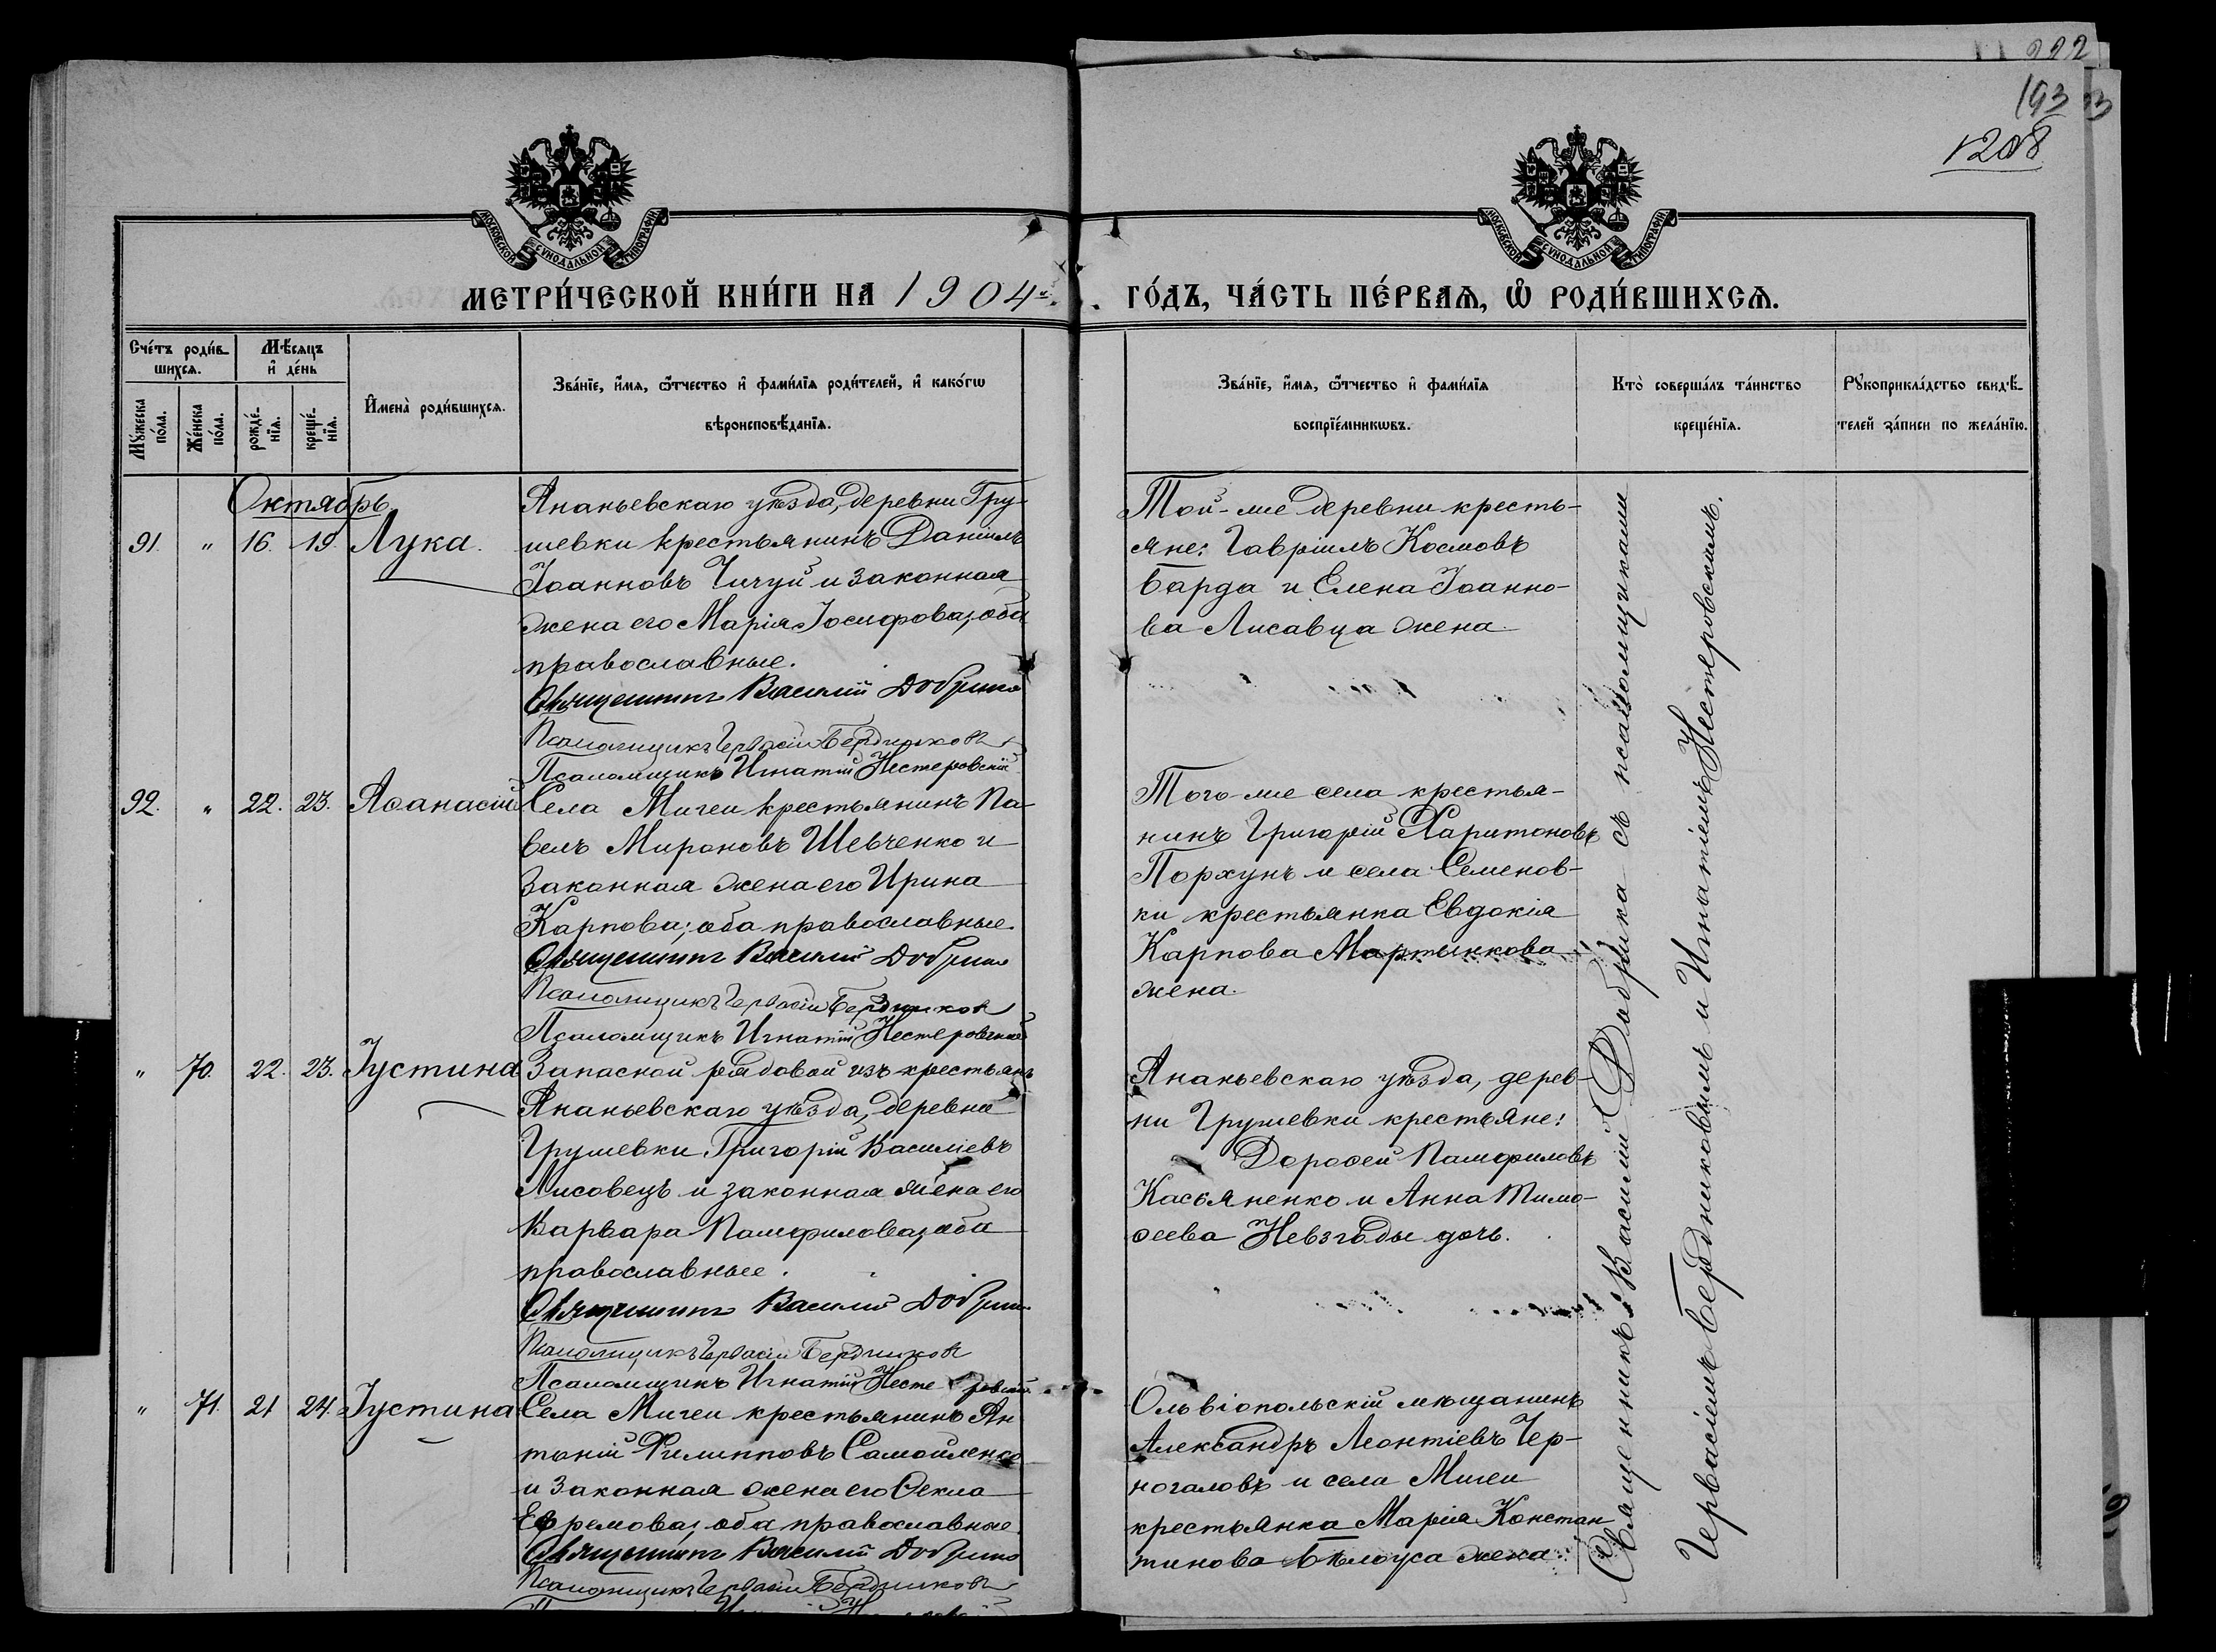 222
193
1208
МОСКОВСКОЙ СѴНОДАЛЬНОЙ ТИПОГРАФІИ
МОСКОВСКОЙ СѴНОДАЛЬНОЙ ТИПОГРАФІИ
МЕТРИ́ЧЕСКОЙ КНИ́ГИ НА 1904 ГО́ДЪ, ЧА́СТЬ ПЕ́РВАѦ, Ѽ РОДИ́ВШИХСѦ.
Сче́тъ роди́в-
шихсѧ.
Мѣ́сѧцъ
и҆ де́нь
Мꙋ́жеска
по́ла.
Же́нска
по́ла.
рожде́-
нїѧ.
креще́-
нїѧ.
И҆мена̀ роди́вшихсѧ.
Зва́нїе, и҆́мѧ, ѻ҆́тчество и҆ фами́лїѧ роди́телей, и҆ како́гѡ
вѣроисповѣ́данїѧ.
Зва́нїе, и҆́мѧ, ѻ҆́тчество и҆ фами́лїѧ
воспрїе́мникѡвъ.
Кто̀ соверша́лъ та́инство
креще́нїѧ.
Рꙋкоприкла́дство свидѣ́-
телей за́писи по жела́нїю.
Октябрь.
91. " 16. 19. Лука.
Ананьевскаго уѣзда, деревни Гру-
шевки крестьянинъ Даніилъ
Іоанновъ Чичуй и законная
жена его Марія Іосифова; оба
православные.
Священникъ Василій Добрика
Псаломщикъ Гервасій Бердников
Псаломщикъ Игнатій Нестеровскій
Той-же деревни кресть-
яне: Гавріилъ Космовъ
Барда и Елена Іоанно-
ва Лисавца жена.
92. " 22. 23. Аѳанасій
Села Мигеи крестьянинъ Па-
велъ Мироновъ Шевченко и
законная жена его Ирина
Карпова; оба православные.
Священникъ Василій Добрика
Псаломщикъ Гервасій Бердников
Псаломщикъ Игнатій Нестеровскій
Того-же села крестья-
нинъ Григорій Харитоновъ
Порхунъ и села Семенов-
ки крестьянка Евдокія
Карпова Мартынкова
жена.
" 70. 22. 23. Іустина
Запасной рядовой изъ крестьянъ
Ананьевскаго уѣзда, деревни
Грушевки, Григорій Василіевъ
Лисовецъ и законная жена его
Варвара Памфилова; оба
православные.
Священникъ Василій Добрика
Псаломщикъ Гервасій Бердников
Псаломщикъ Игнатій Нестеровскій
Ананьевскаго уѣзда, дерев-
ни Грушевки крестьяне:
Дороѳей Памфиловъ
Касьяненко и Анна Тимо-
ѳеева Невзгоды дочь.
" 71. 21 24. Іустина
Села Мигеи крестьянинъ Ан-
тоній Филипповъ Самойленко
и законная жена его Ѳекла
Ефремова; оба православные.
Священникъ Василій Добрика
Псаломщикъ Гервасій Бердников
Ольвіопольскій мѣщанинъ
Александръ Леонтіевъ Чер-
ногаловъ и села Мигеи
крестьянка Марія Констан
тинова Бѣлоуса жена.
Священникъ Василій Добрика съ псаломщиками
Гервасіемъ Бердниковымъ и Игнатіемъ Нестеровскимъ.